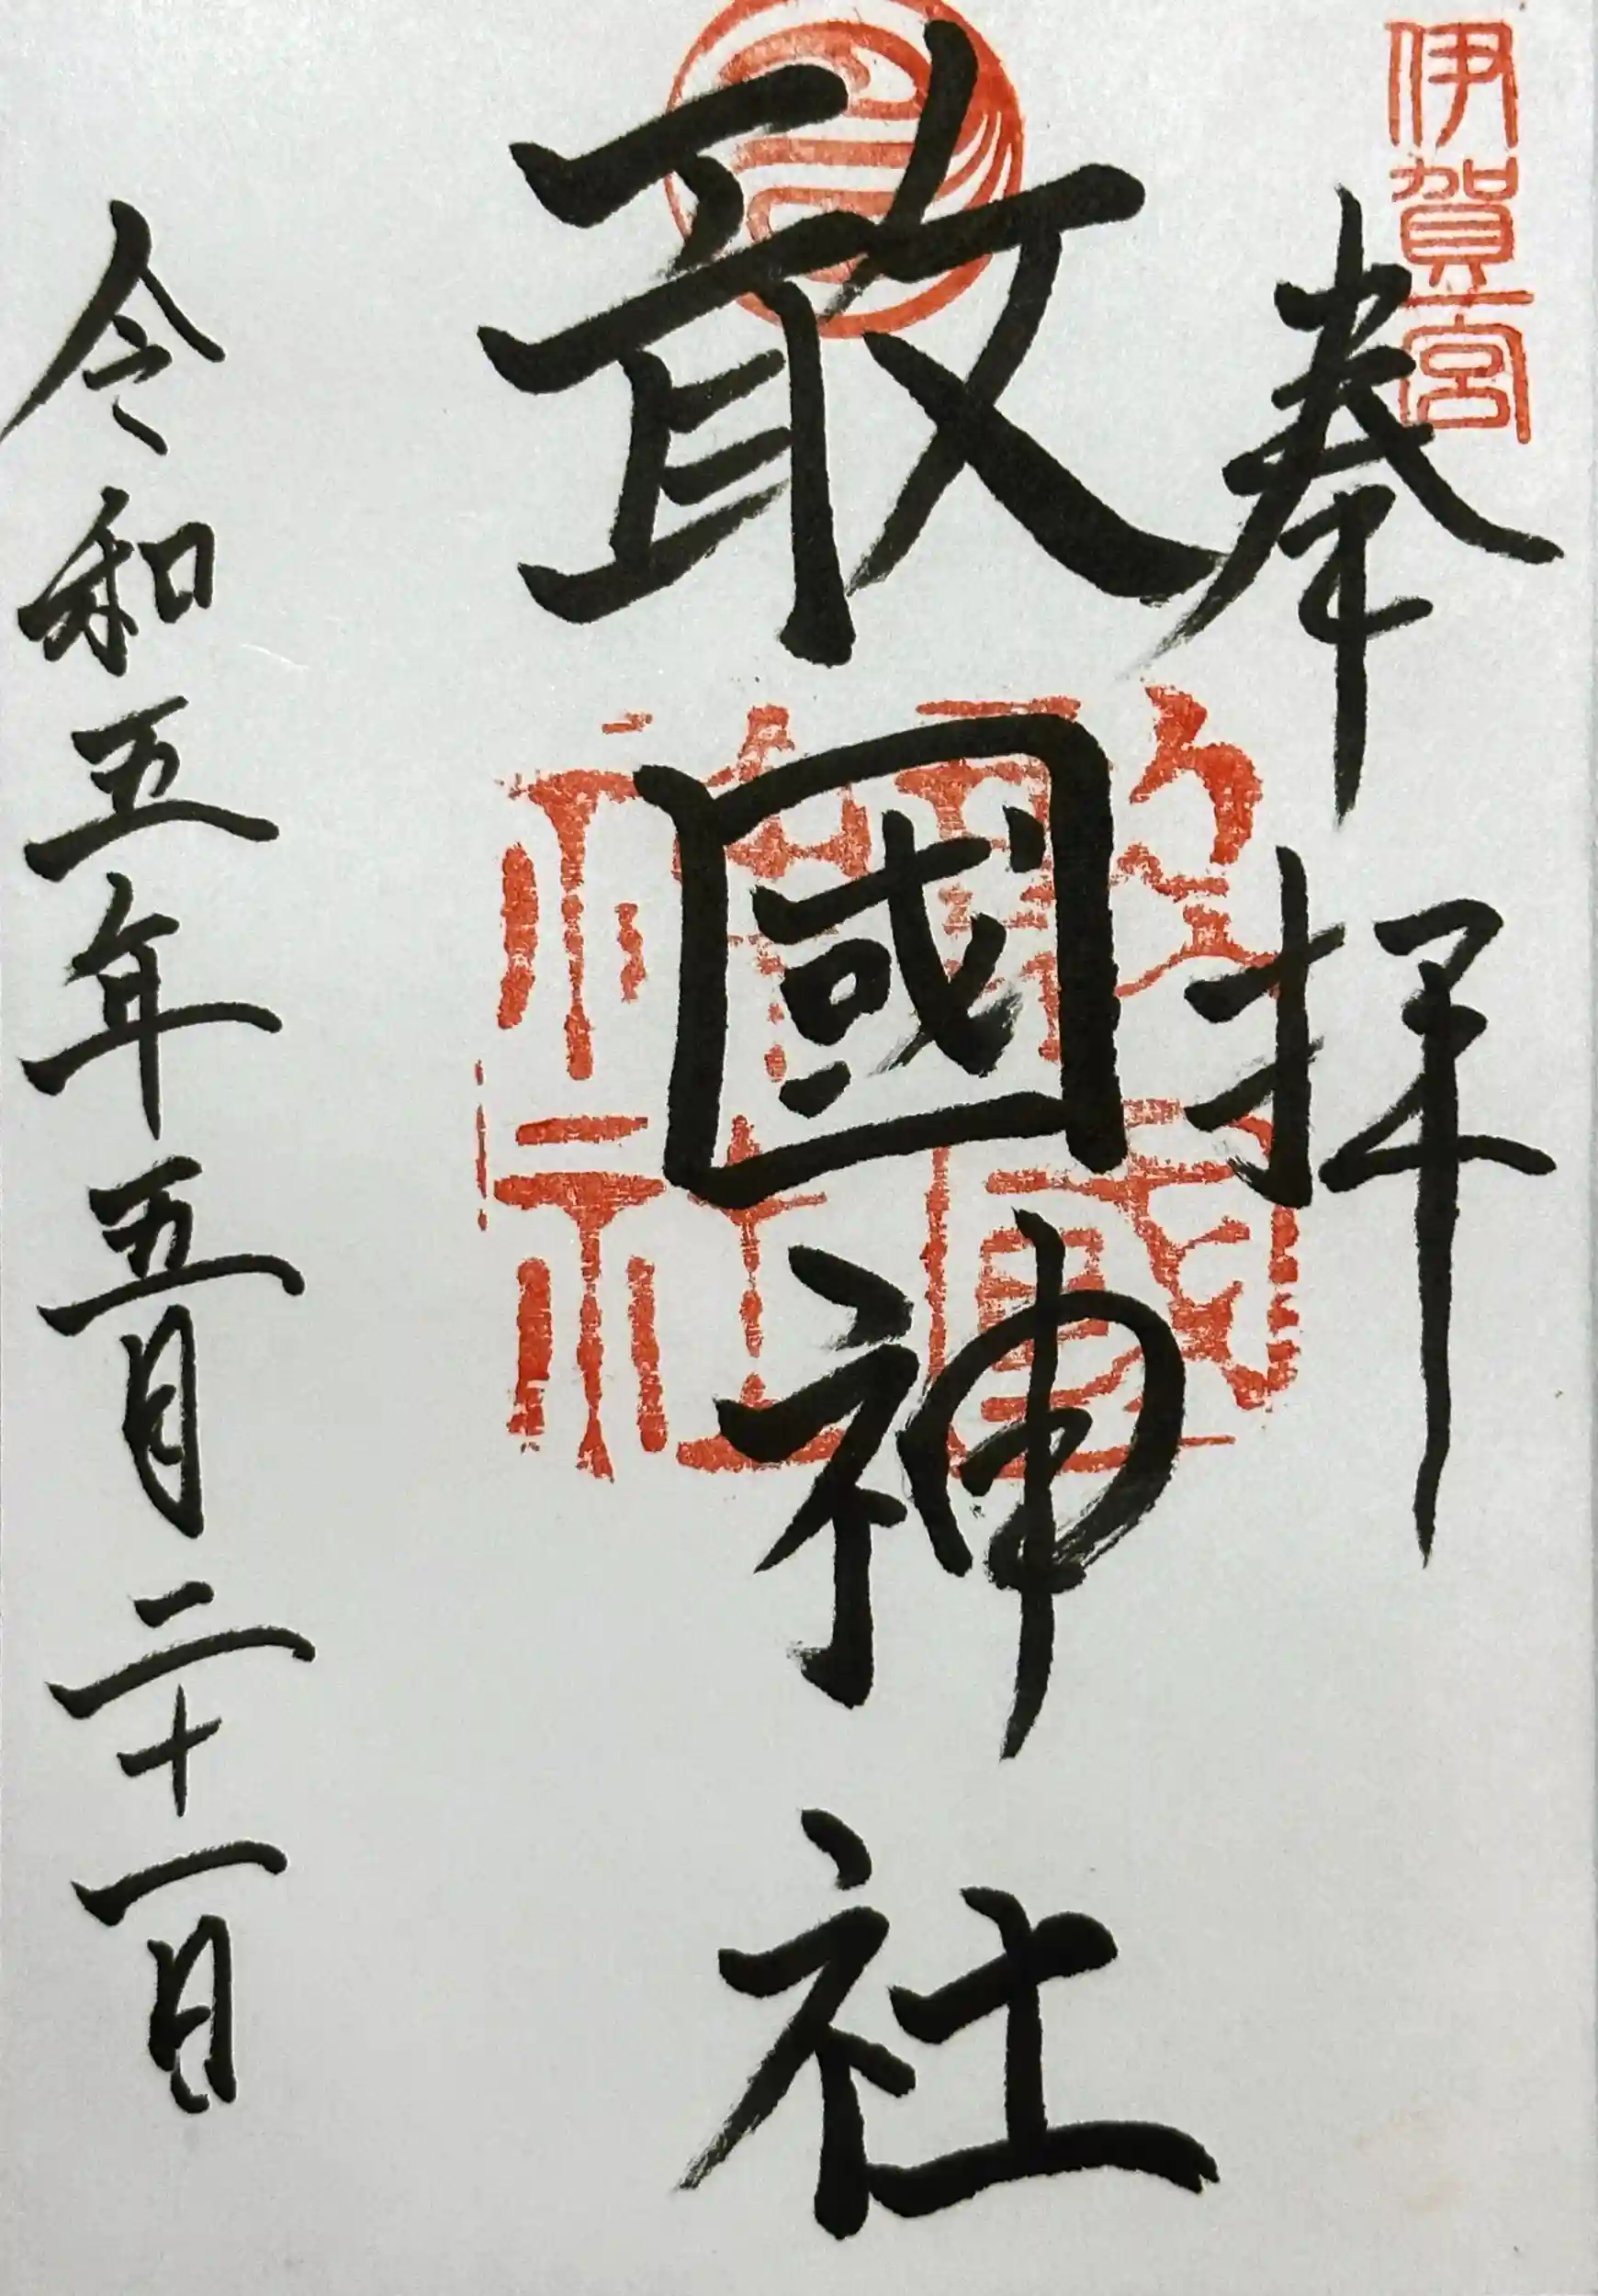 伊賀一宮
奉拝
敢國神社
敢國神社
令和五年五月二十一日